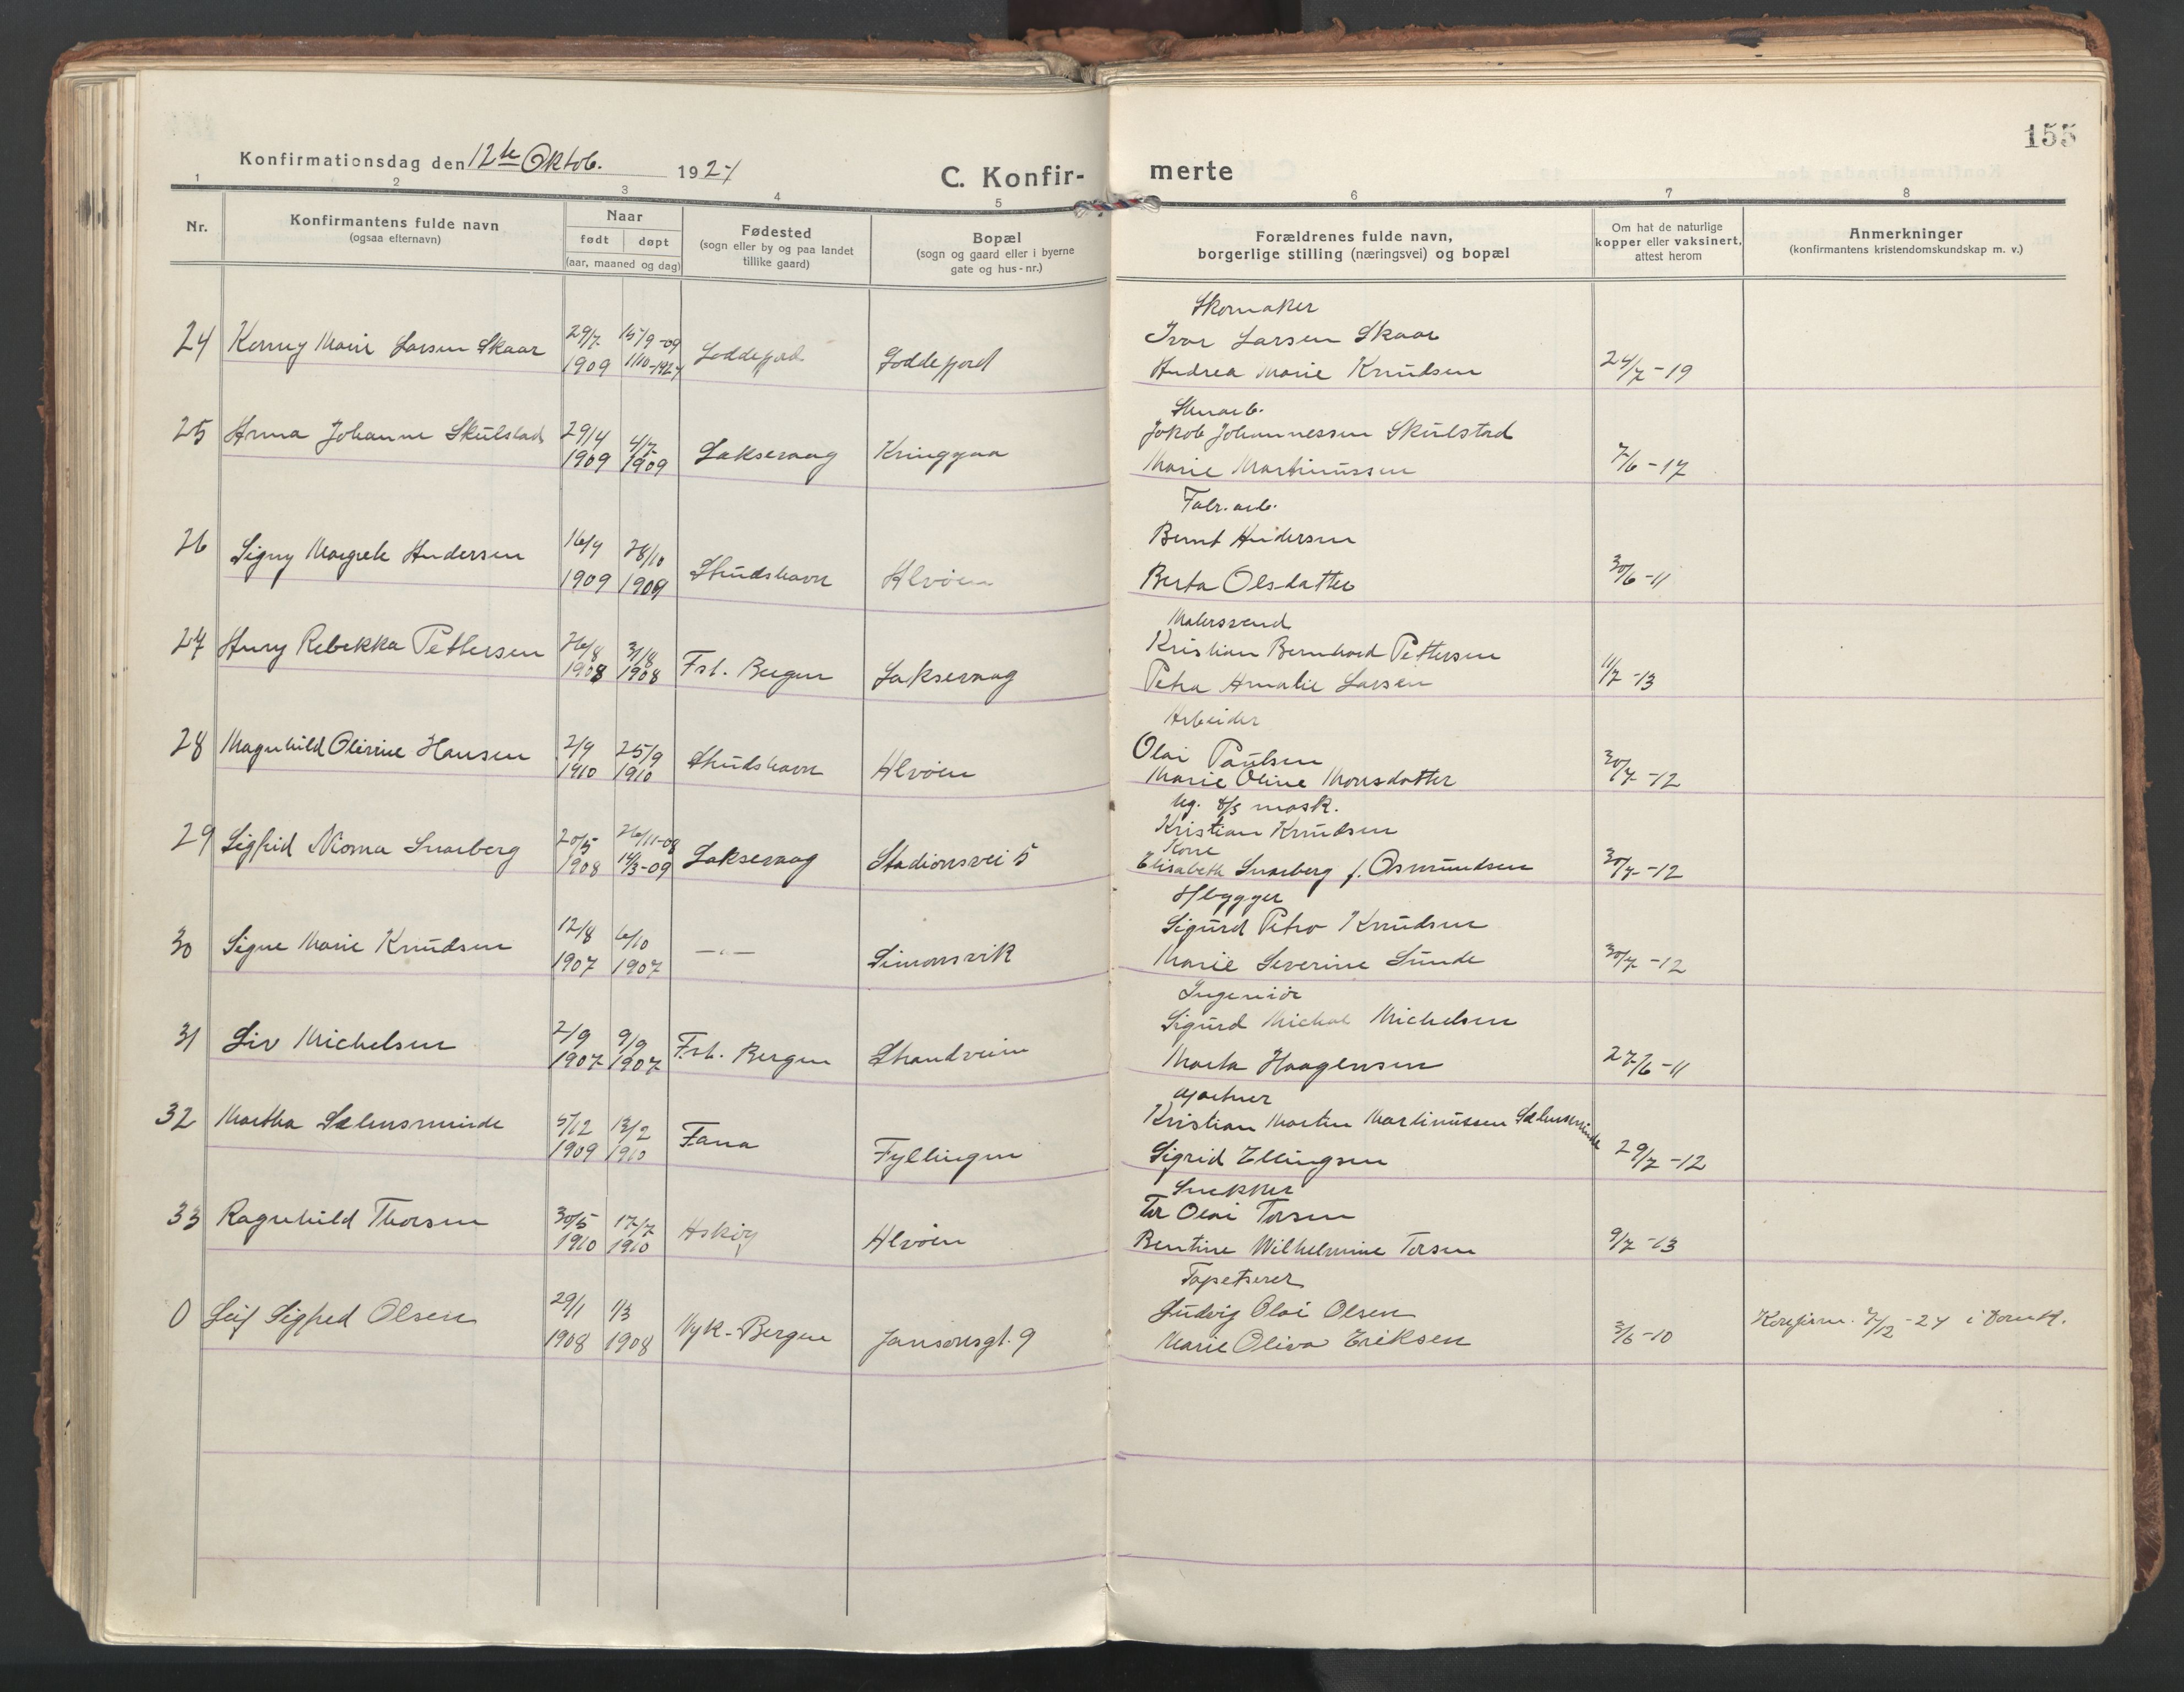 155
Konfirmationsdag den 12te Oktob. 1924
C. Konfir-
merte
1 2 3 4 5 6 7 8
Nr.
Konfirmantens fulde navn
(ogsaa efternavn)
Naar
født døpt
(aar, maaned og dag)
Fødested
(sogn eller by og paa landet
tillike gaard)
Bopæl
(sogn og gaard eller i byerne
gate og hus-nr.)
Forældrenes fulde navn,
borgerlige stilling (næringsvei) og bopæl
Om hat de naturlige
kopper eller vaksinert,
attest herom
Anmerkninger
(konfirmantens kristendomskundskap m. v.)
Skomaker
24 Kenny Marie Larsen Skaar 29/7 1909 15/9-09 1/10-1924 Loddefjord Loddefjord
Ivar Larsen Skaar
Andrea Marie Knudsen 24/7-19
25 Anna Johanne Skulstad 29/4 1909 4/7 1909 Laksevaag Kringsjaa
Jakob Johannessen Skulstad
Marie Martinussen 7/6-17
Fabr. arb.
26 Signy Margrete Andersen 16/9 1909 28/10 1909 Strudshavn Alvøen
Bernt Andersen
Berta Olsdatter 30/6-11
Malersvend
27 Anny Rebekka Pettersen 26/8 1908 31/8 1908 Fst. Bergen Laksevaag
Kristian Bernhard Pettersen
Petra Amalie Larsen 11/7-13
Arbeider
28 Magnhild Olivine Hansen 2/9 1910 25/9 1910 Strudshavn Alvøen
Olai Paulsen
Marie Oline Monsdatter 30/7-12
Ug. d/s mask.
29 Sigfrid Norma Snarberg 20/5 1908 26/11-08 14/3-09 Laksevaag Stadionsvei 5
Kristian Knudsen
Kone
Elisabeth Snarberg f. Osmundsen 30/7-12
Hbygger
30 Signe Marie Knudsen 12/8 1907 6/10 1907 —"— Simonsvik
Sigurd Petro Knudsen
Marie Severine Sunde 30/7-12
Ingeniør
31 Liv Michelsen 2/9 1907 9/9 1907 Fst. Bergen Strandveien
Sigurd Michal Michelsen
Marta Haagensen 27/6-11
Gartner
32 Martha Sælensminde 5/12 1909 13/2 1910 Fana Fyllingen
Kristian Martin Martinussen Sælensminde
Sigrid Ellingsen 29/7-12
Snekker
33 Ragnhild Thorsen 30/5 1910 17/7 1910 Askøy Alvøen
Tor Olai Torsen
Bentine Wilhelmine Torsen 9/7-13
Tapetserer
0 Leif Sigfred Olsen 29/1 1908 1/3 1908 Nyk-Bergen Jansonsgt. 9
Ludvig Olai Olsen
Marie Oliva Eriksen 3/6-10 Konfirm. 7/12-24 i Domk.